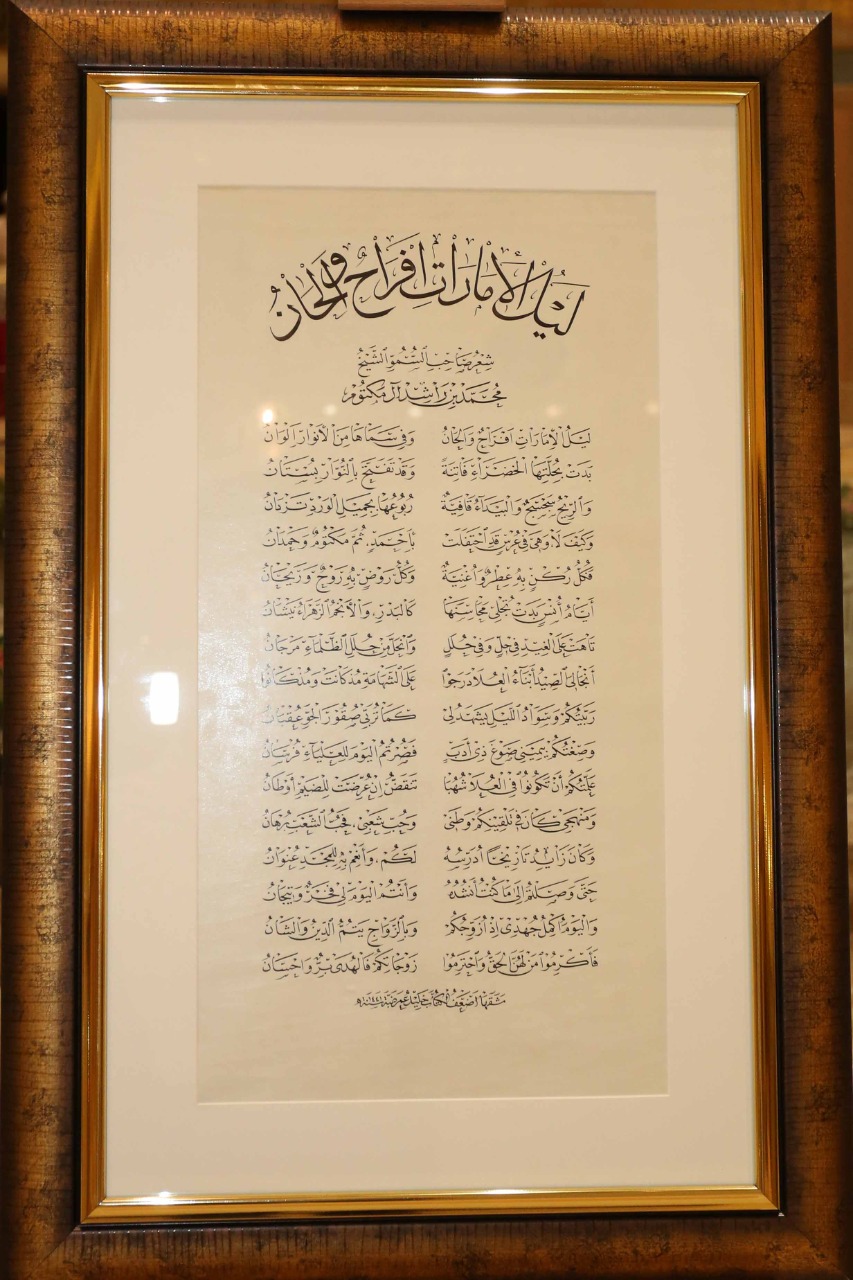 ليل الأمارات افراح والحان
شعر صاحب السمو الشيخ
محمد بن راشد آل مكتوم
ليل الإمارات افراح والحان وفي سماها من الأنوار ألوان
بدت بحلتها الخضراء فاتنة وقد تفتح بالنوار بستان
والريح سجسج والبيداء قافية ربوعها بجميل الورد تزدان
وكيف لا وهي في عرس قد احتفلت بأحمد، ثم مكتوم وحمدان
فكل ركن به عطر وأغنية وكل روض به روح وريحان
أيام أنس بدت تجلى محاسنها كالبدر، والأنجم الزهراء نيشان
تاهت على الغيد في حل وفي حلل وانجل من حلل الظلماء مرجان
أنجالي الصيد أبناء العلا درجوا على الشهامة مذ كانت ومذ كانوا
ربيتكم وسواد الليل يشهد لي كما تربي صقور الجو عقبان
وصغتكم بيميني صوغ ذي أدب فصرتم اليوم للعلياء فرسان
علمتكم أن تكونوا في العلا شهبا تنقض إن عرضت للضيم أوطان
ومنهجي كان في تلقينكم وطني وحب شعبي، فحب الشعب برهان
وكان زايد تاريخا أدرسه لكم، وأنعم به للمجد عنوان
حتى وصلتم إلى ما كنت أنشده وأنتم اليوم لي فخر وتيجان
واليوم أكمل جهدي إذ أزوجكم وبالزواج يتم الدين والشان
فأكرموا من لهن الحق واحترموا زوجاتكم فالهدى بر وإحسان
مشقها أضعف الكتاب خليد عمر ضبة سنة ١٤٤٠هـ